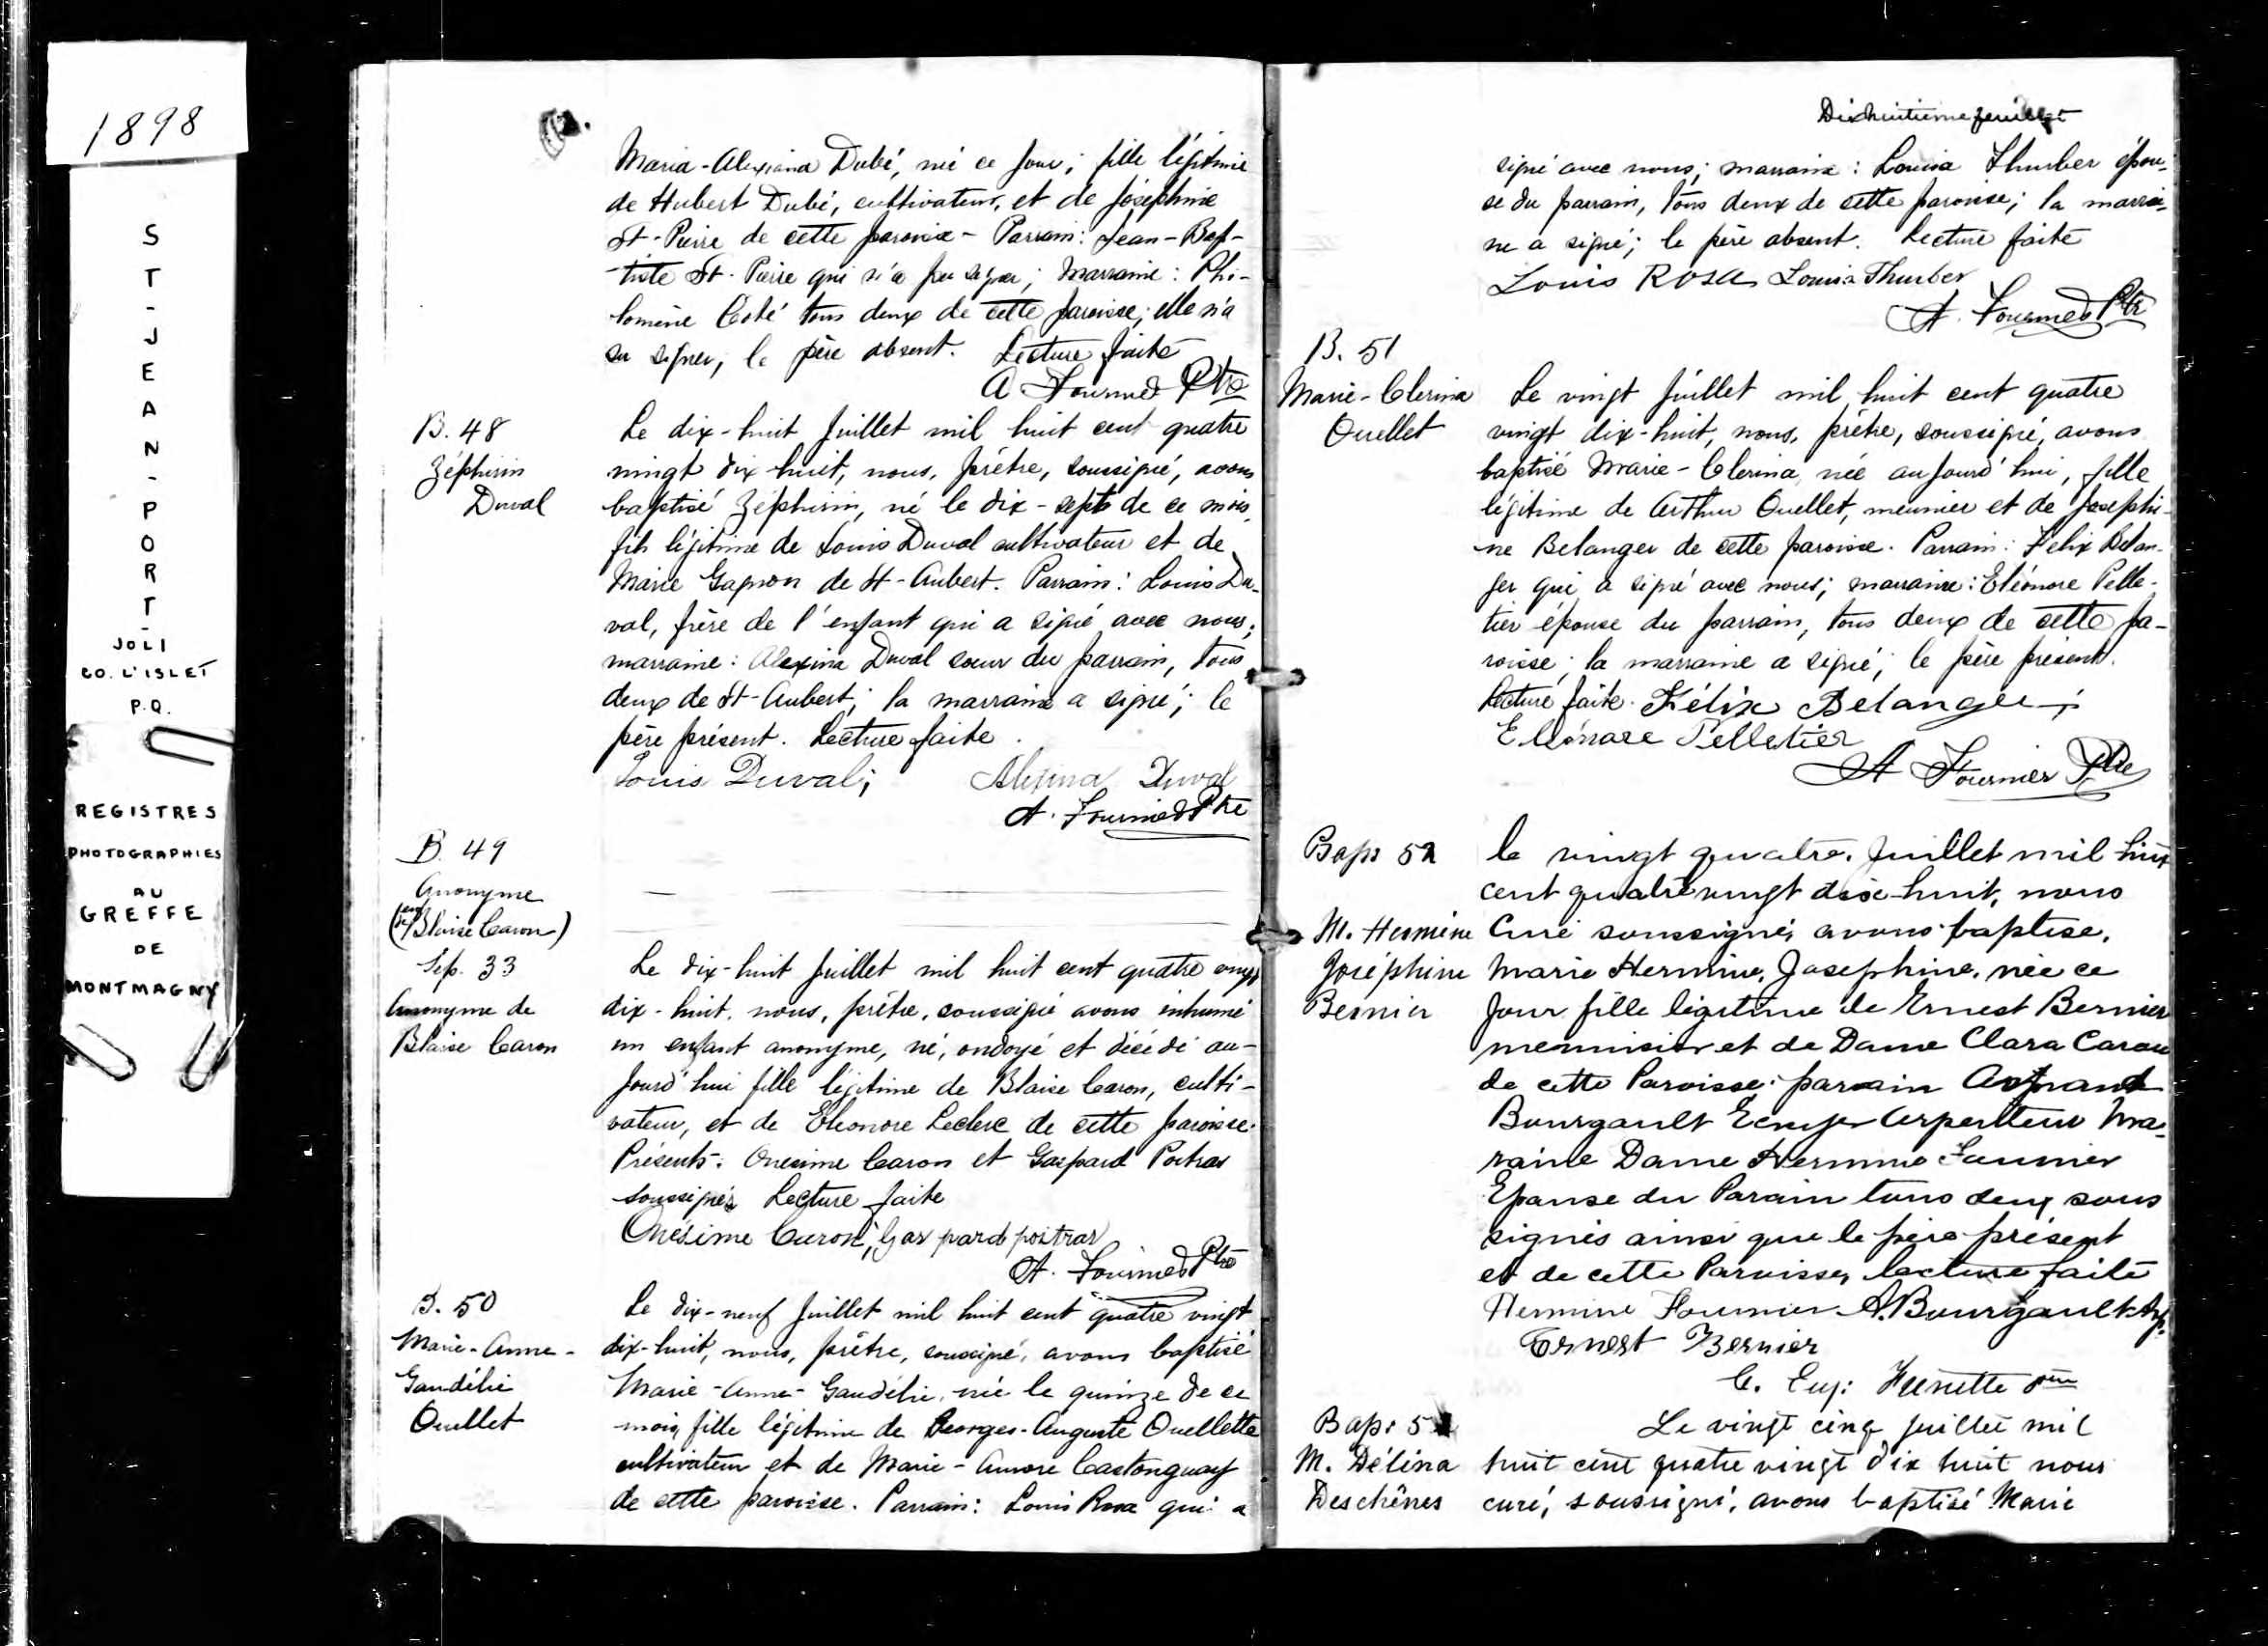 1898
S
T
-
J
E
A
N
-
P
O
R
T
-
JOLI
CO. L'ISLET
P.Q.
REGISTRES
PHOTOGRAPHIES
AU
GREFFE
DE
MONTMAGNY
Maria-Alexiana Dubé, née ce jour; fille légitime
de Hubert Dubé, cultivateur, et de Joséphine
St-Pierre de cette paroisse - Parrain: Jean-Bap-
tiste St-Pierre qui n'a pu signer; Marraine: Phi-
lomène Coté tous deux de cette paroisse; elle n'a
su signer, le père absent. Lecture faite
A Fournier Ptre
B. 48
Zéphirin
Duval
Le dix-huit Juillet mil huit cent quatre
vingt dix-huit, nous, prêtre, soussigné, avons
baptisé Zéphirin, né le dix-sept de ce mois,
fils légitime de Louis Duval cultivateur et de
Marie Gagnon de St-Aubert. Parrain: Louis Du-
val, frère de l'enfant qui a signé avec nous;
marraine: Alexina Duval soeur du parrain, tous
deux de St-Aubert; la marraine a signé; le
père présent. Lecture faite.
Louis Duval; Alexina Duval
A. Fournier Ptre
B. 49
Anonyme
(enf de Blaise Caron)
Sep. 33
Anonyme de
Blaise Caron
Le dix-huit Juillet mil huit cent quatre vingt
dix-huit, nous, prêtre, soussigné avons inhumé
un enfant anonyme, né, ondoyé et décédé au-
jourd'hui fille légitime de Blaise Caron, culti-
vateur, et de Eleonore Leclerc de cette paroisse.
Présents: Onesime Caron et Gaspard Poitras
soussignés Lecture faite
Onésime Caron; Gaspard poitras
A. Fournier Ptre
B. 50
Marie-Anne-
Gaudélie
Ouellet
Le dix-neuf Juillet mil huit cent quatre vingt
dix-huit, nous, prêtre, soussigné, avons baptisé
Marie-Anne-Gaudélie, née le quinze de ce
mois, fille légitime de Georges-Auguste Ouellette
cultivateur et de Marie-Aurore Castonguay
de cette paroisse. Parrain: Louis Rosa qui a
Dixhuitième feuillet
signé avec nous; marraine: Louisa Thurber épou-
se du parrain, tous deux de cette paroisse; la marrai-
ne a signé; le père absent. Lecture faite
Louis Rosa Louisa Thurber
A. Fournier Ptr
B. 51
Marie-Clerina
Ouellet
Le vingt Juillet mil huit cent quatre
vingt dix-huit, nous, prêtre, soussigné, avons
baptisé Marie-Clerina, née aujourd'hui, fille
légitime de Arthur Ouellet, meunier et de Josephi-
ne Belanger de cette paroisse. Parrain: Félix Belan-
ger qui a signé avec nous; marraine: Eléonore Pelle-
tier épouse du parrain, tous deux de cette pa-
roisse; la marraine a signé; le père présent.
Lecture faite. Félix Belanger;
Elléonore Pelletier
A Fournier Ptre
Bapt 52
M. Hermine
Joséphine
Bernier
le vingt quatre Juillet mil huit
cent quatre vingt dix-huit, nous
Curé soussigné, avons baptise,
Marie Hermine, Josephine, née ce
Jour fille légitime de Ernest Bernier
menuisier et de Dame Clara Caron
de cette Paroisse: parrain
Bourgault Ecuyer Arpenteur Ma-
raine Dame Hermine Fournier
Epouse du Parain tous deux sous
signés ainsi que le père présent
et de cette Paroisse, lecture faite
Hermine Fournier A. Bourgault Arp.
Ernest Bernier
C. Eug: Frenette
Bapt 5
M. Délina
Deschênes
Le vingt cinq juillet mil
huit cent quatre vingt dix huit nous
curé, soussigné, avons baptisé Marie